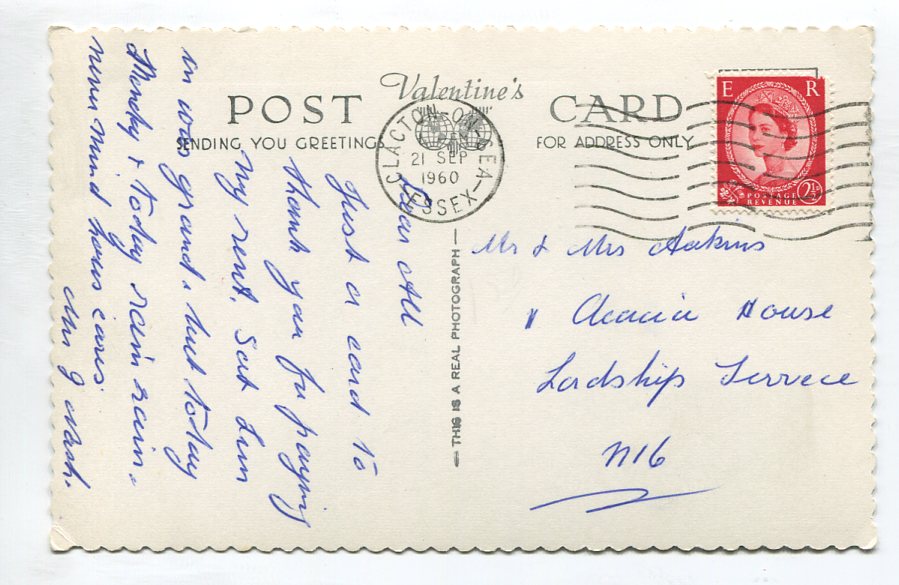 Valentine's
POST CARD
SENDING YOU GREETINGS
FOR ADDRESS ONLY
CLACTON-ON-SEA
21 SEP
1960
ESSEX
E R
POSTAGE
REVENUE
2½
THIS IS A REAL PHOTOGRAPH
Dear All
Just a card to
thank you for paying
My rent. Sat Sun
in was grand. but today
Monday & today rain rain.
never mind hours
Mr & Mrs Askins
Acacia House
Lordship Terrece
N16